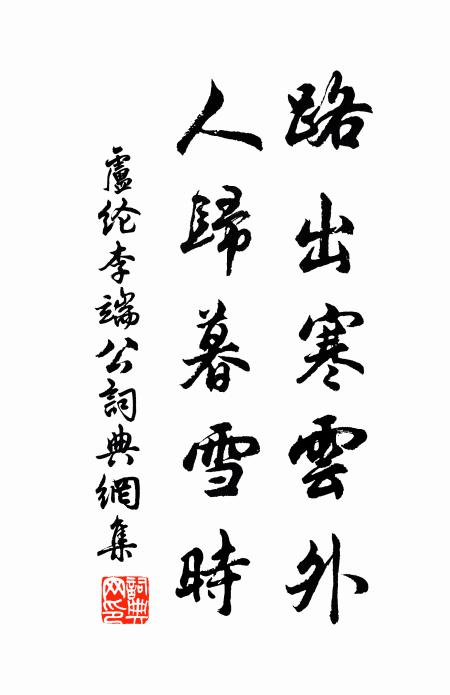 路出寒雲外
人歸暮雪時
盧纶李端公詞典網集
詞典网印